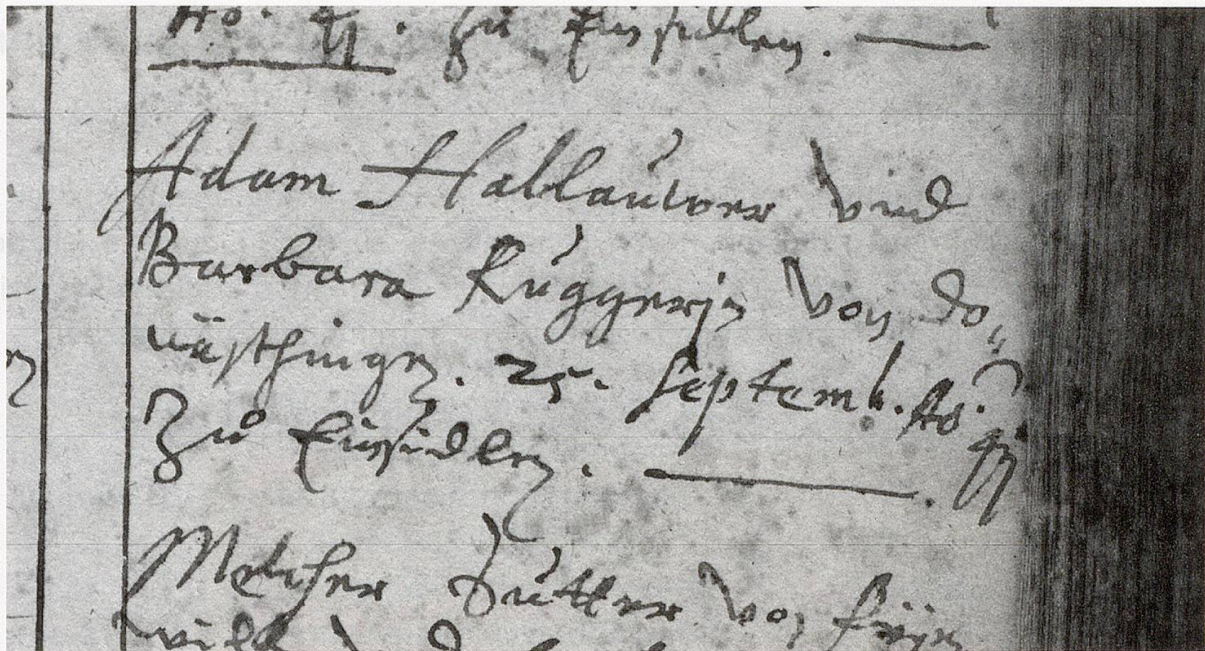 Ao. 41. Zu Einsidlen.
Adam Hallauwer vnd
Barbara Ruggerin von Do„
nästhingen. 25. Septemb. Ao. 41
Zu Einsidlen.
Melcher Sutter von